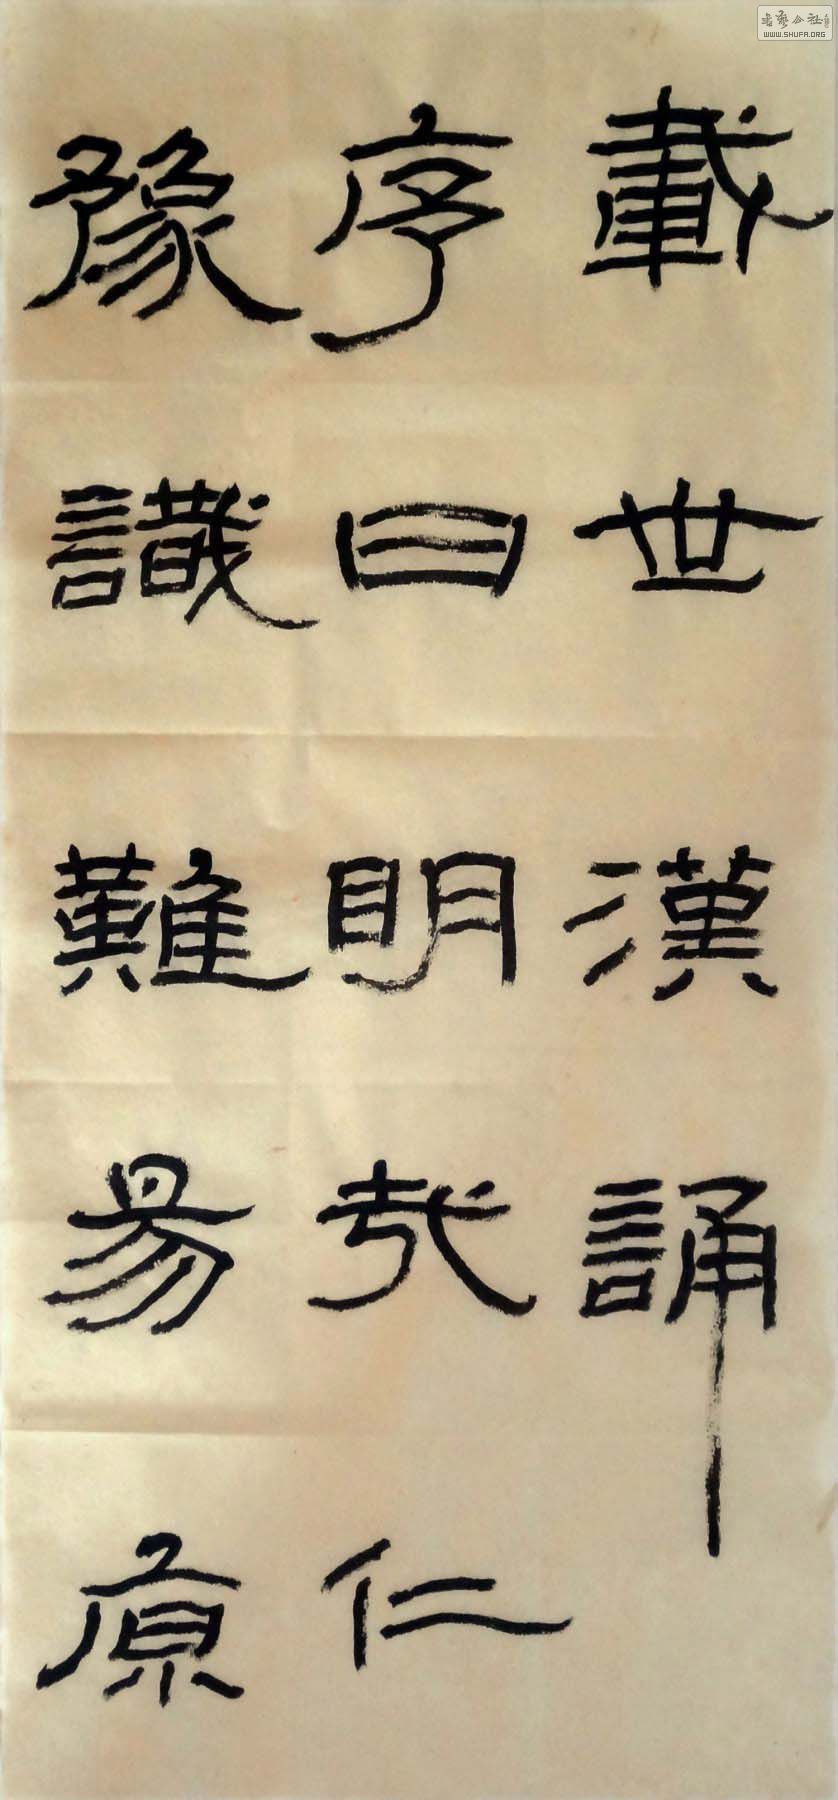 載世漢誦
序曰明哉仁
豫識難易原
WWW.SHUFA.ORG